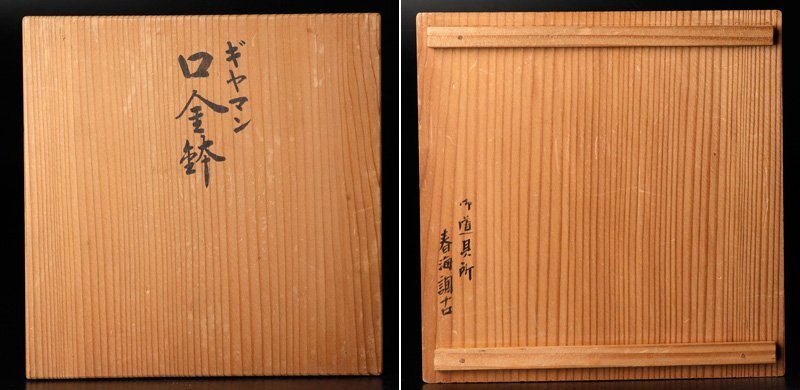 ギヤマン
口金鉢
御道具所
春海調